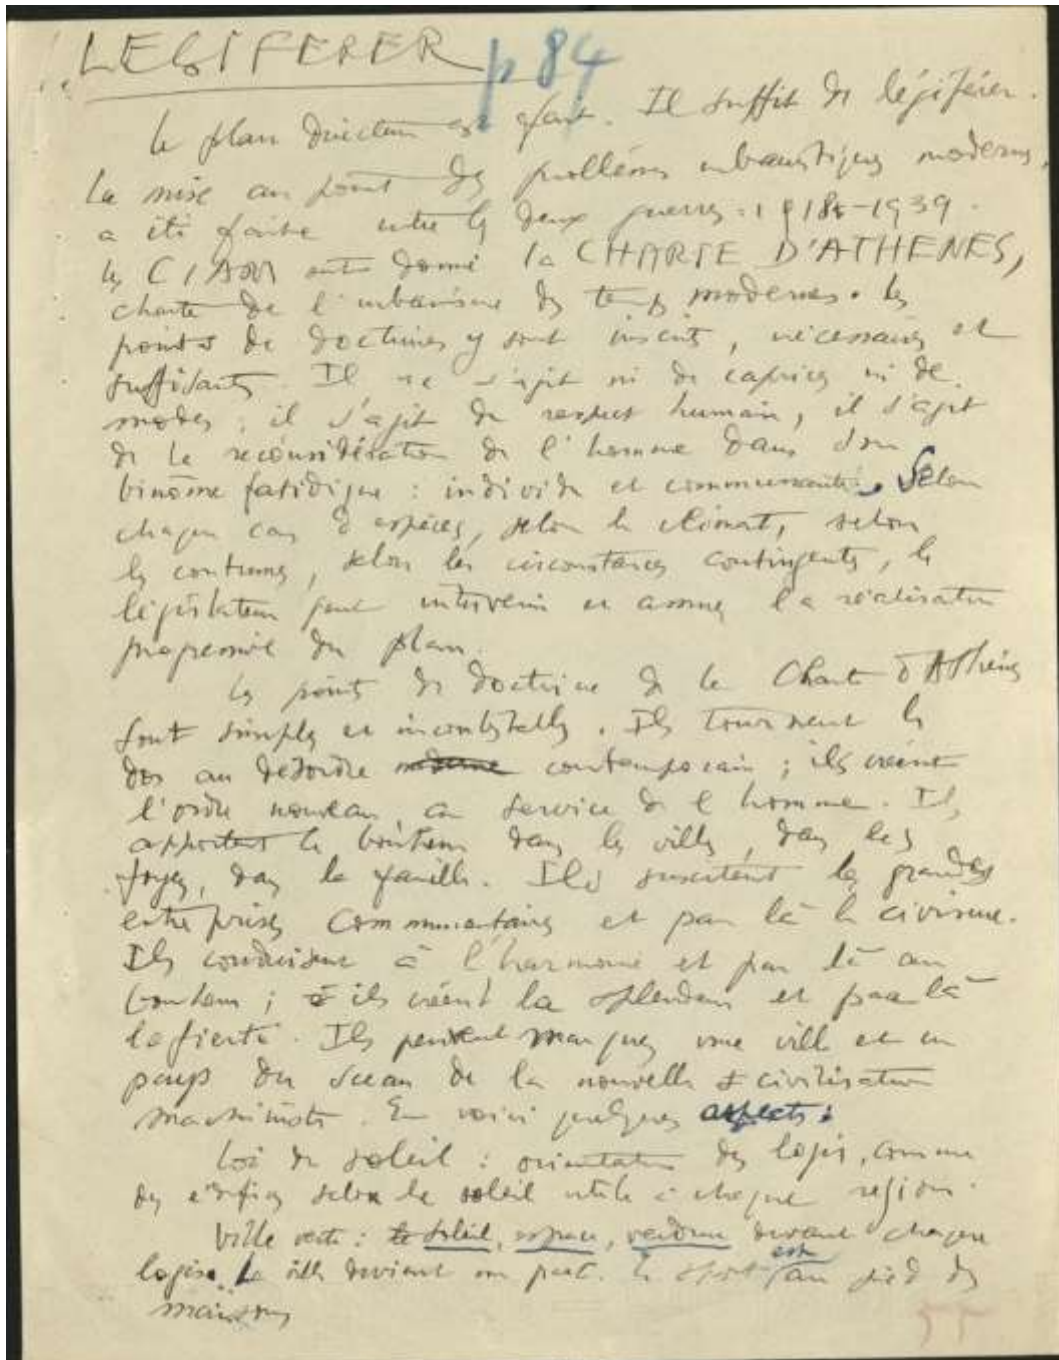 LEGIFERER p 84
Le plan directeur est fait. Il suffit de légiférer.
La mise au point des problèmes urbanistiques modernes,
a été faite entre les deux guerres : 1918-1939.
les CIAM ont donné la CHARTE D'ATHENES,
charte de l'urbanisme des temps modernes. les
points de doctrines y sont inscrits, nécessaires et
suffisants. Il ne s'agit ni de caprices ni de
modes ; il s'agit de respect humain, il s'agit
de la reconsidération de l'homme dans son
binôme fatidique : individu et communauté. Selon
chaque cas d'espèces, selon le climat, selon
les coutumes, selon les circonstances contingentes, le
législateur peut intervenir et assurer la réalisation
progressive du plan.
les points de doctrine de la Charte d'Athènes
sont simples et incontestables. Ils tournent le
dos au désordre moderne contemporain ; ils créent
l'ordre nouveau, au service de l'homme. Ils
apportent le bonheur dans les villes, dans les
foyers, dans la famille. Ils suscitent les grandes
entreprises communautaires et par là le civisme.
Ils conduisent à l'harmonie et par là au
bonheur ; ils créent la splendeur et par là
la fierté. Ils peuvent marquer une ville et un
pays du sceau de la nouvelle civilisation
machiniste. En voici quelques aspects :
Loi du soleil : orientation des logis, comme
des édifices selon le soleil utile à chaque région.
Ville verte : le soleil, espace, verdure devant chaque
logis. La ville devient un parc. le sport est au pied des
maisons
55